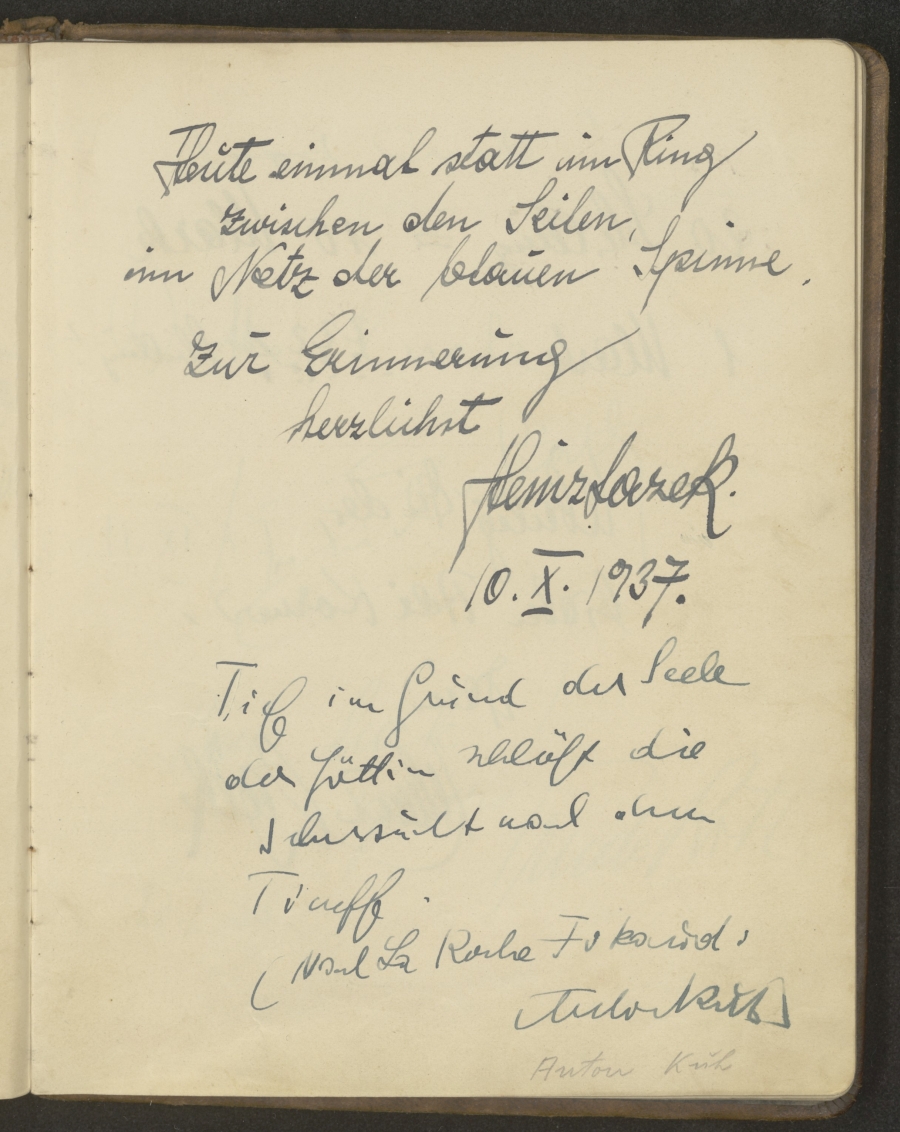 Heute einmal statt im Ring
zwischen den Seilen,
im Netz der blauen Spinne.
Zur Erinnerung
herzlichst
Heinz Lazek.
10. X. 1937.
Tief im Grund der Seele
der Göttin schläft die
Sehnsucht nach dem
(Nach La Roche
Anton Kuh
Anton Kuh